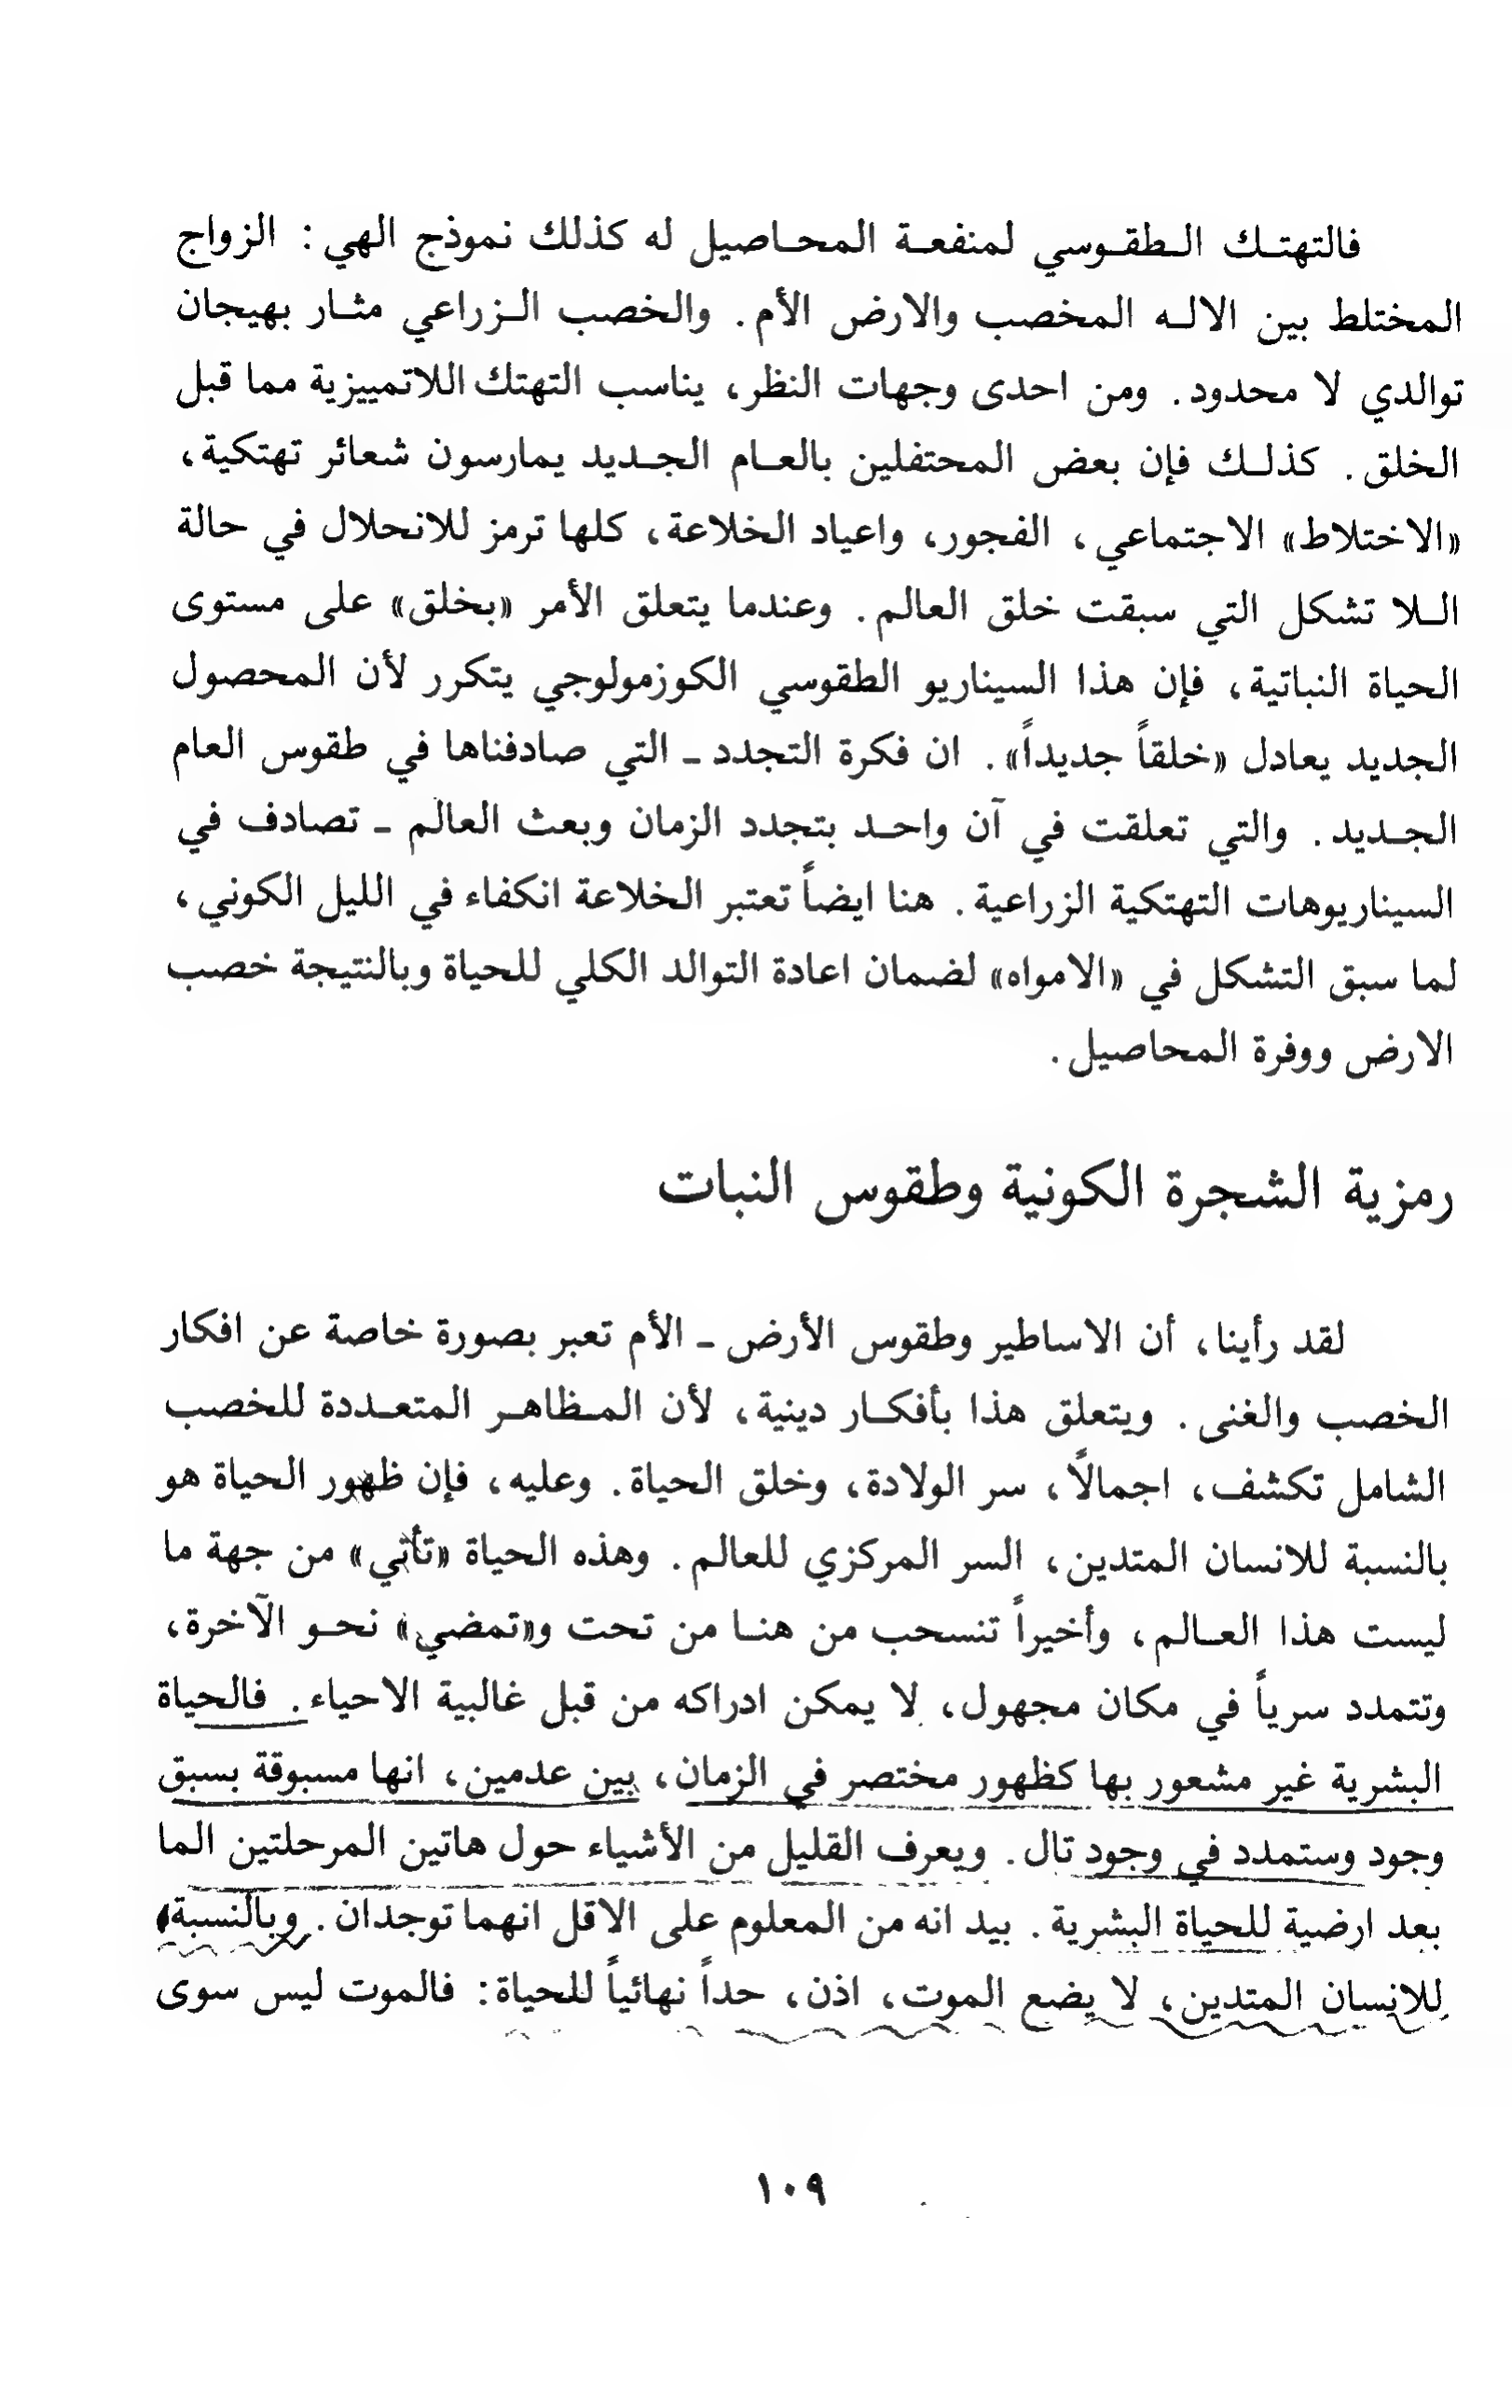 فالتهتك الطقوسي لمنفعة المحاصيل له كذلك نموذج الهي : الزواج
المختلط بين الاله المخصب والارض الأم . والخصب الزراعي مثار بهيجان
توالدي لا محدود . ومن احدى وجهات النظر، يناسب التهتك اللاتمييزية مما قبل
الخلق . كذلك فإن بعض المحتفلين بالعام الجديد يمارسون شعائر تهتكية،
«الاختلاط» الاجتماعي، الفجور، واعياد الخلاعة، كلها ترمز للانحلال في حالة
اللا تشكل التي سبقت خلق العالم . وعندما يتعلق الأمر «بخلق» على مستوى
الحياة النباتية، فإن هذا السيناريو الطقوسي الكوزمولوجي يتكرر لأن المحصول
الجديد يعادل «خلقاً جديداً» . ان فكرة التجدد ـ التي صادفناها في طقوس العام
الجديد . والتي تعلقت في آن واحد بتجدد الزمان وبعث العالم ـ تصادف في
السيناريوهات التهتكية الزراعية . هنا ايضاً تعتبر الخلاعة انكفاء في الليل الكوني،
لما سبق التشكل في «الامواه» لضمان اعادة التوالد الكلي للحياة وبالنتيجة خصب
الارض ووفرة المحاصيل .
رمزية الشجرة الكونية وطقوس النبات
لقد رأينا، أن الاساطير وطقوس الأرض ـ الأم تعبر بصورة خاصة عن افكار
الخصب والغنى . ويتعلق هذا بأفكار دينية، لأن المظاهر المتعددة للخصب
الشامل تكشف، اجمالاً، سر الولادة، وخلق الحياة . وعليه، فإن ظهور الحياة هو
بالنسبة للانسان المتدين، السر المركزي للعالم . وهذه الحياة «تأتي» من جهة ما
ليست هذا العالم، وأخيراً تنسحب من هنا من تحت و«تمضي» نحو الآخرة،
وتتمدد سرياً في مكان مجهول، لا يمكن ادراكه من قبل غالبية الاحياء . فالحياة
البشرية غير مشعور بها كظهور مختصر في الزمان، بين عدمين، انها مسبوقة بسبق
وجود وستمدد في وجود تال . ويعرف القليل من الأشياء حول هاتين المرحلتين الما
بعد ارضية للحياة البشرية . بيد انه من المعلوم على الاقل انهما توجدان . وبالنسبة
للانسان المتدين، لا يضع الموت، اذن، حداً نهائياً للحياة : فالموت ليس سوى
١٠٩